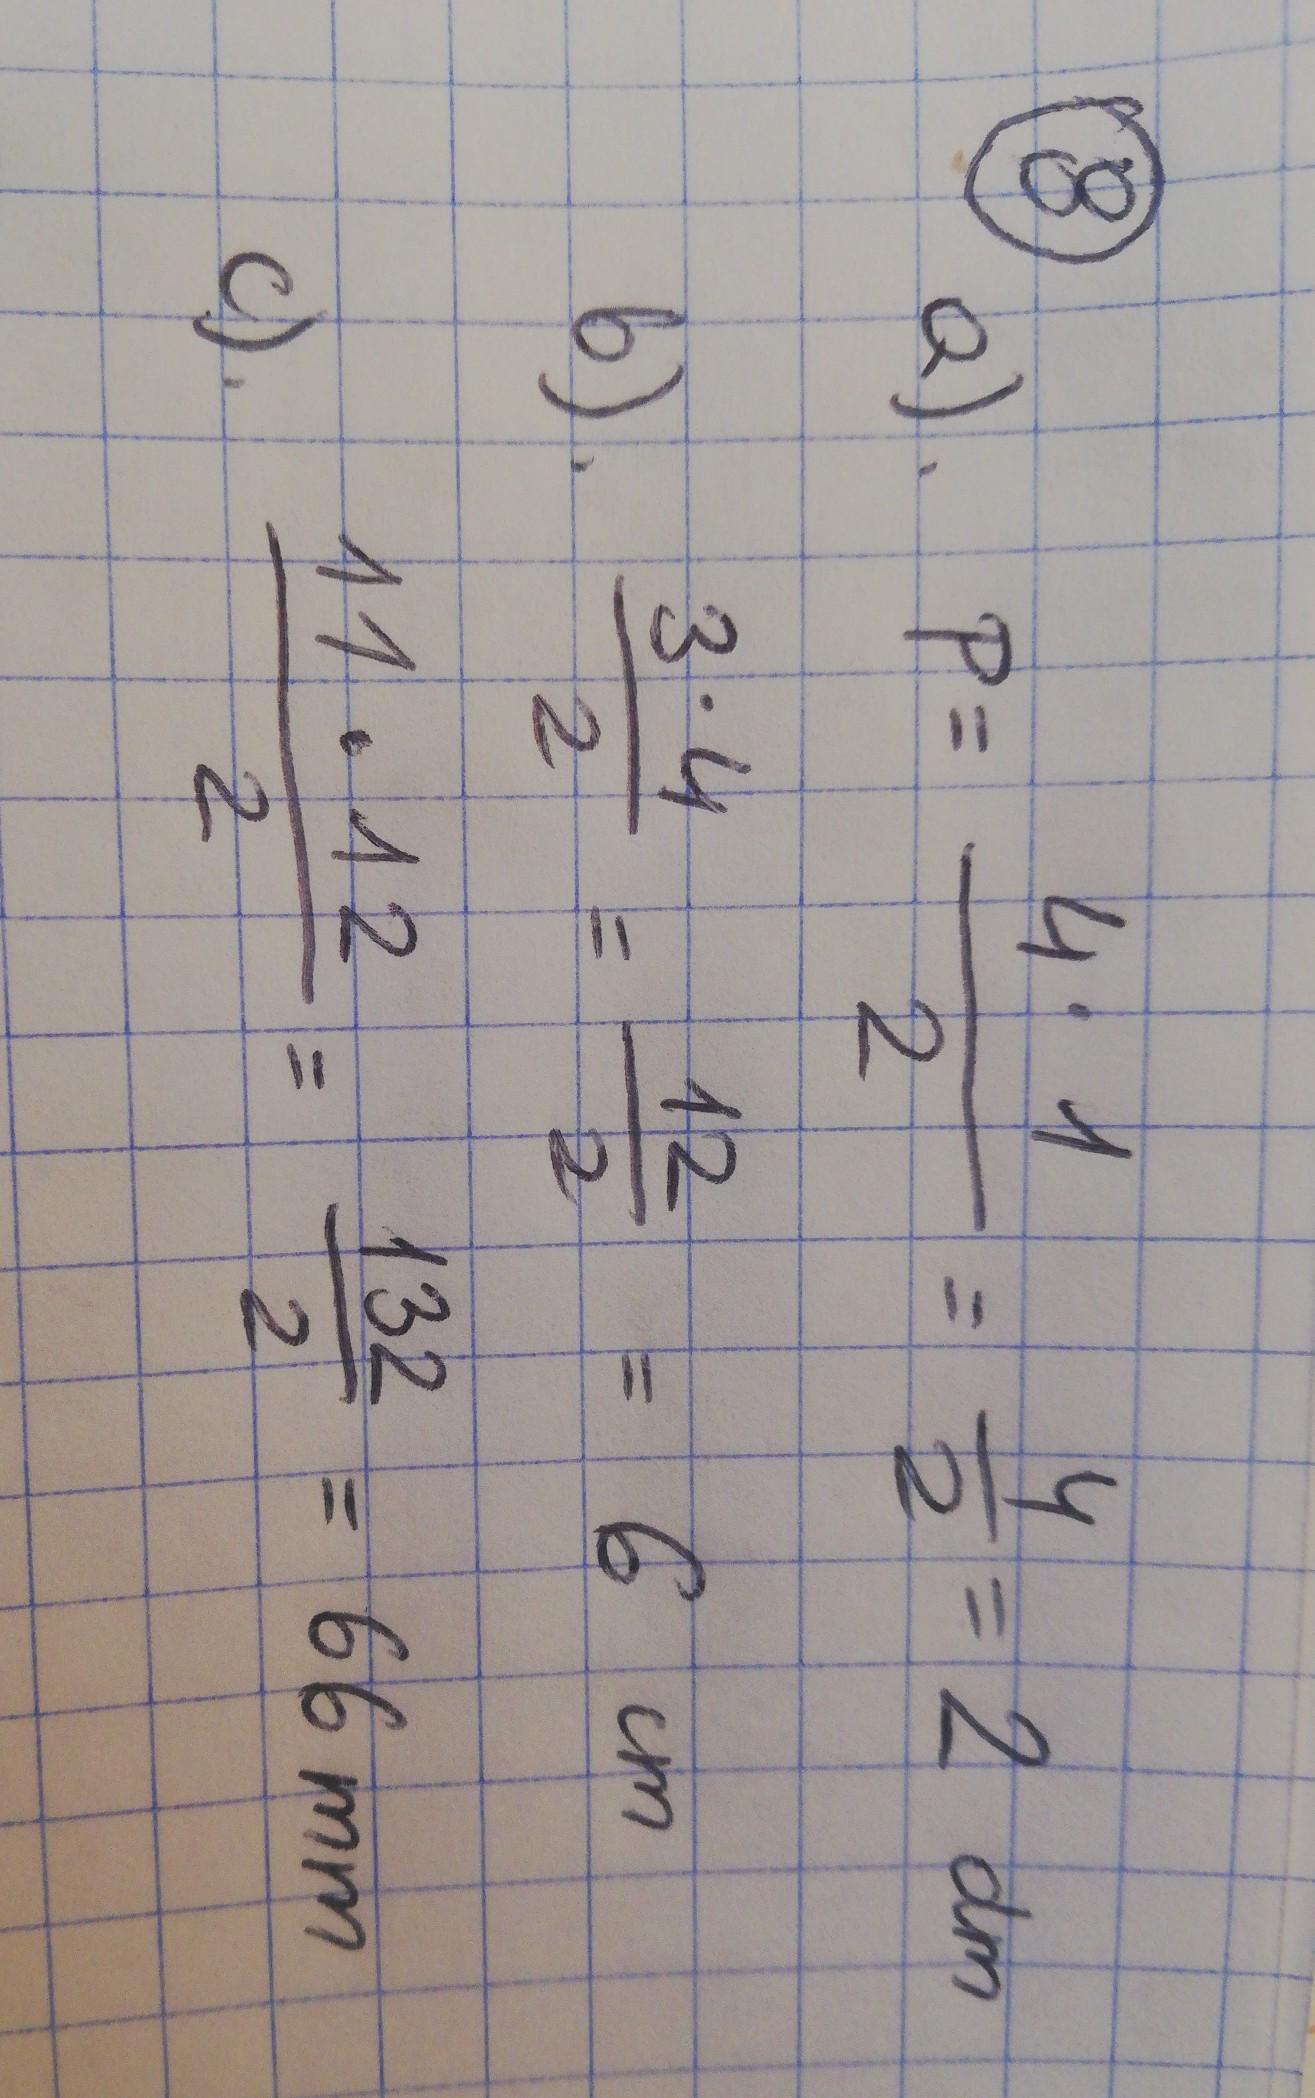 8 a). P = \frac{4 · 1}{2} = \frac{4}{2} = 2 dm
b). \frac{3 · 4}{2} = \frac{12}{2} = 6 cm
c). \frac{11 · 12}{2} = \frac{132}{2} = 66 mm